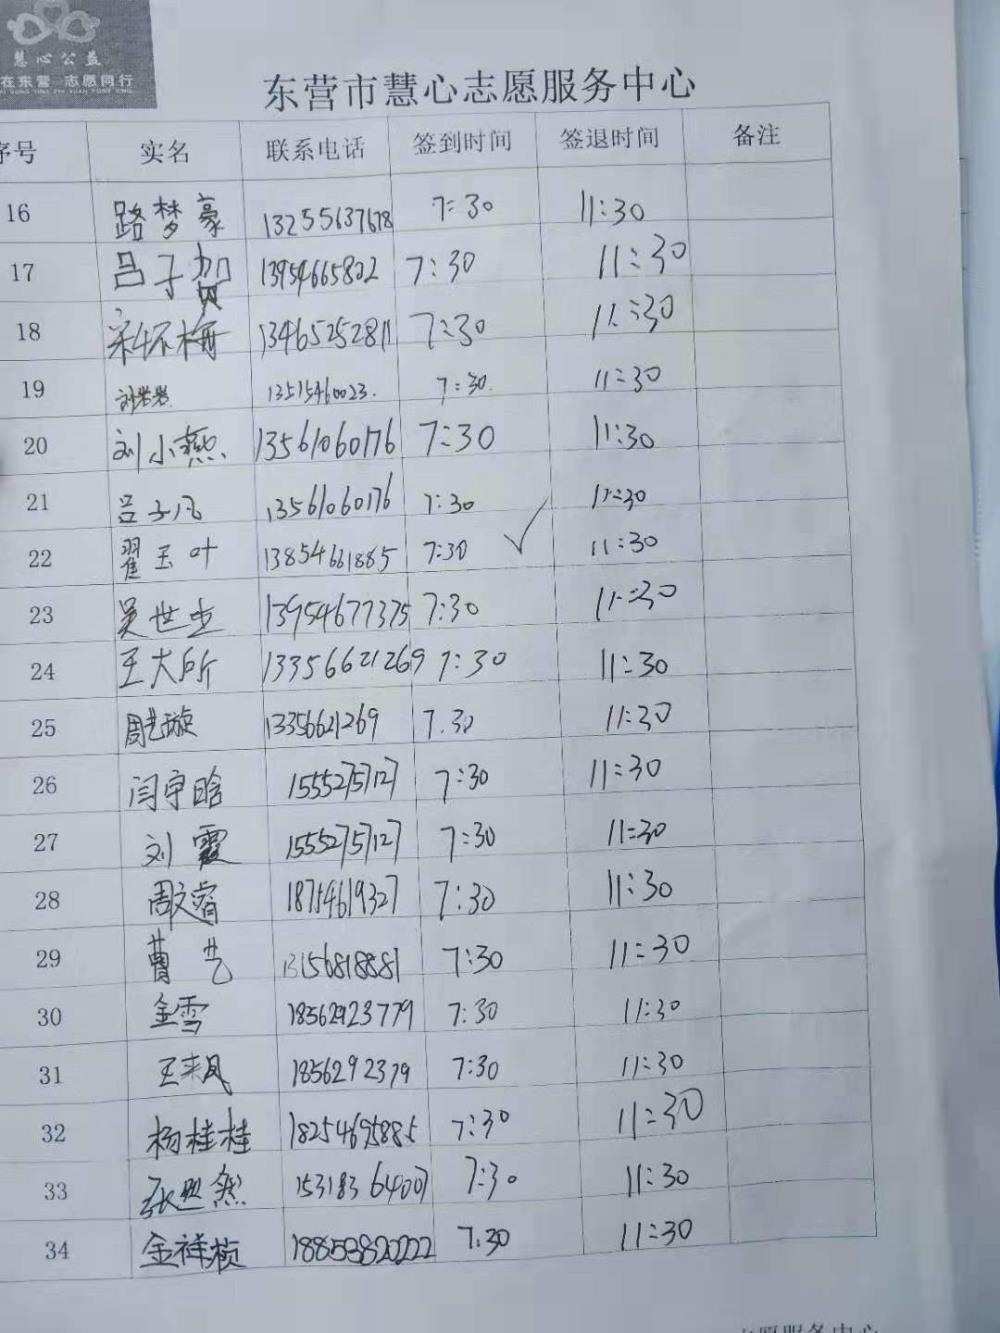 慧心公益
在东营 志愿同行
东营市慧心志愿服务中心
序号 实名 联系电话 签到时间 签退时间 备注
16 路梦豪 13255637678 7:30 11:30
17 吕子贺 13954665802 7:30 11:30
18 宋怀梅 13465252811 7:30 11:30
19 13515460023. 7:30. 11:30
20 刘小燕 13561060176 7:30 11:30
21 吕子凡 13561060176 7:30 11:30
22 翟玉叶 13854661885 7:30 ✓ 11:30
23 吴世杰 13954677375 7:30 11:30
24 王大所 13356621269 7:30 11:30
25 周艺璇 13356621269 7.30 11:30
26 闫宇晗 15552757127 7:30 11:30
27 刘霞 15552757127 7:30 11:30
28 周文睿 18754619327 7:30 11:30
29 曹艺 13156818881 7:30 11:30
30 金雪 18562923779 7:30 11:30
31 王来凤 1856292379 7:30 11:30
32 杨桂桂 18254695885 7:30 11:30
33 张思然 15318364007 7:30 11:30
34 金祥祯 18853820222 7:30 11:30